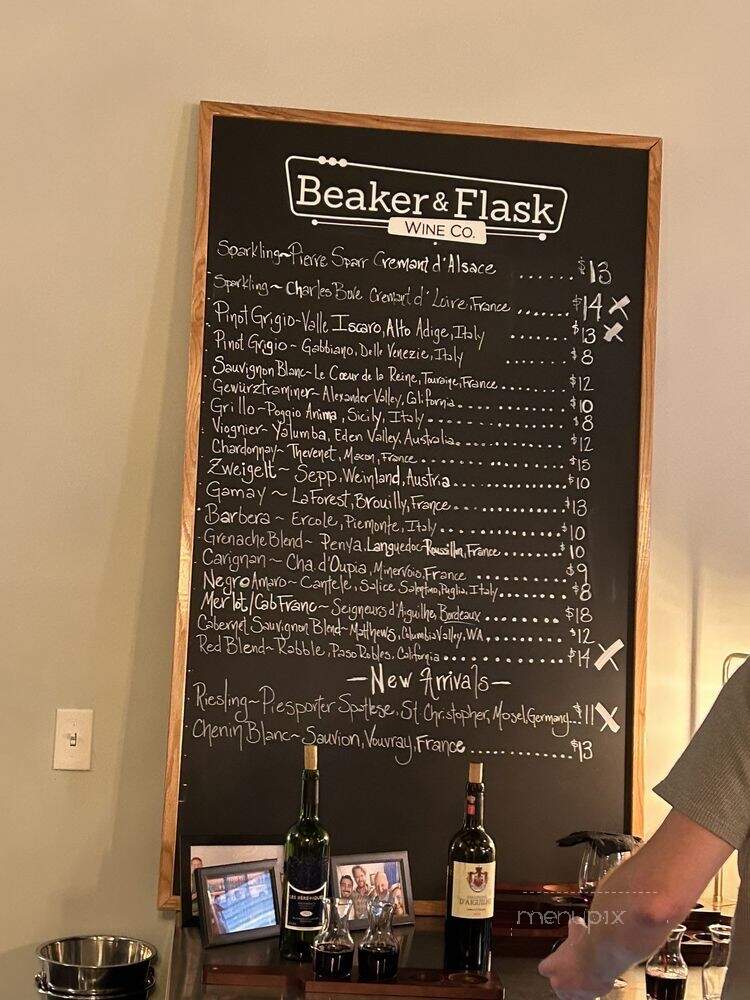 Beaker & Flask
WINE CO.
Sparkling~Pierre Sparr Cremant d'Alsace ...... $13
Sparkling~ Charles Bove Cremant d'Loire, France ...... $14 X
Pinot Grigio-Valle Iscaro, Alto Adige, Italy ...... $13 X
Pinot Grigio~ Gabbiano, Delle Venezie, Italy ...... $8
Sauvignon Blanc~ Le Cœur de la Reine, Touraine, France ...... $12
Gewürztraminer~ Alexander Valley, California ...... $10
Grillo~Poggio Anima, Sicily, Italy ...... $8
Viognier~ Yalumba, Eden Valley, Australia ...... $12
Chardonnay~ Thevenet, Macon, France ...... $15
Zweigelt~ Sepp, Weinland, Austria ...... $10
Gamay ~ LaForest, Brouilly, France ...... $13
Barbera ~ Ercole, Piemonte, Italy ...... $10
Grenache Blend~ Penya, Languedoc-Roussillon, France ...... $10
Carignan~ Cha. d'Oupia, Minervois, France ...... $9
Negro Amaro~ Cantele, Salice Salentino, Puglia, Italy ...... $8
Merlot/Cab Franc~ Seigneurs d'Aiguilhe, Bordeaux ...... $18
Cabernet Sauvignon Blend~ Matthews, Columbia Valley, WA ...... $12
Red Blend~ Rabble, Paso Robles, California ...... $14 X
—New Arrivals—
Riesling~Piesporter Spatlese, St Christopher, Mosel, Germany... $11 X
Chenin Blanc~ Sauvion, Vouvray, France ...... $13
D'AIGUILHE
menupix